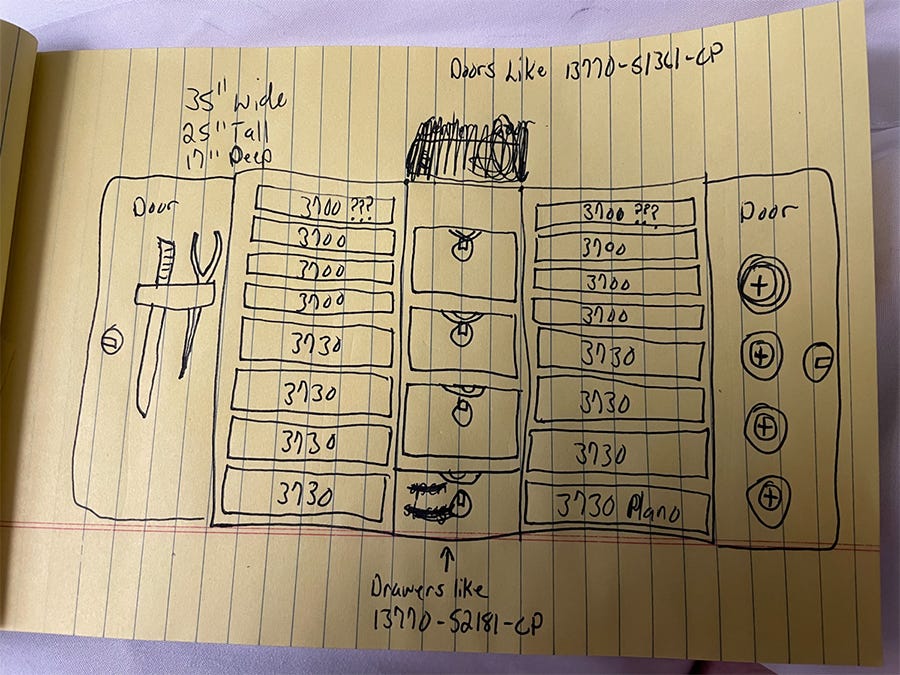 Doors Like 13770-51361-CP
35" Wide
25" Tall
17" Deep
Door
3700 ???
3700
3700
3700
3730
3730
3730
3730
3700 ???
3700
3700
3700
3730
3730
3730
3730 Plano
Door
Drawers like
13770-52181-CP